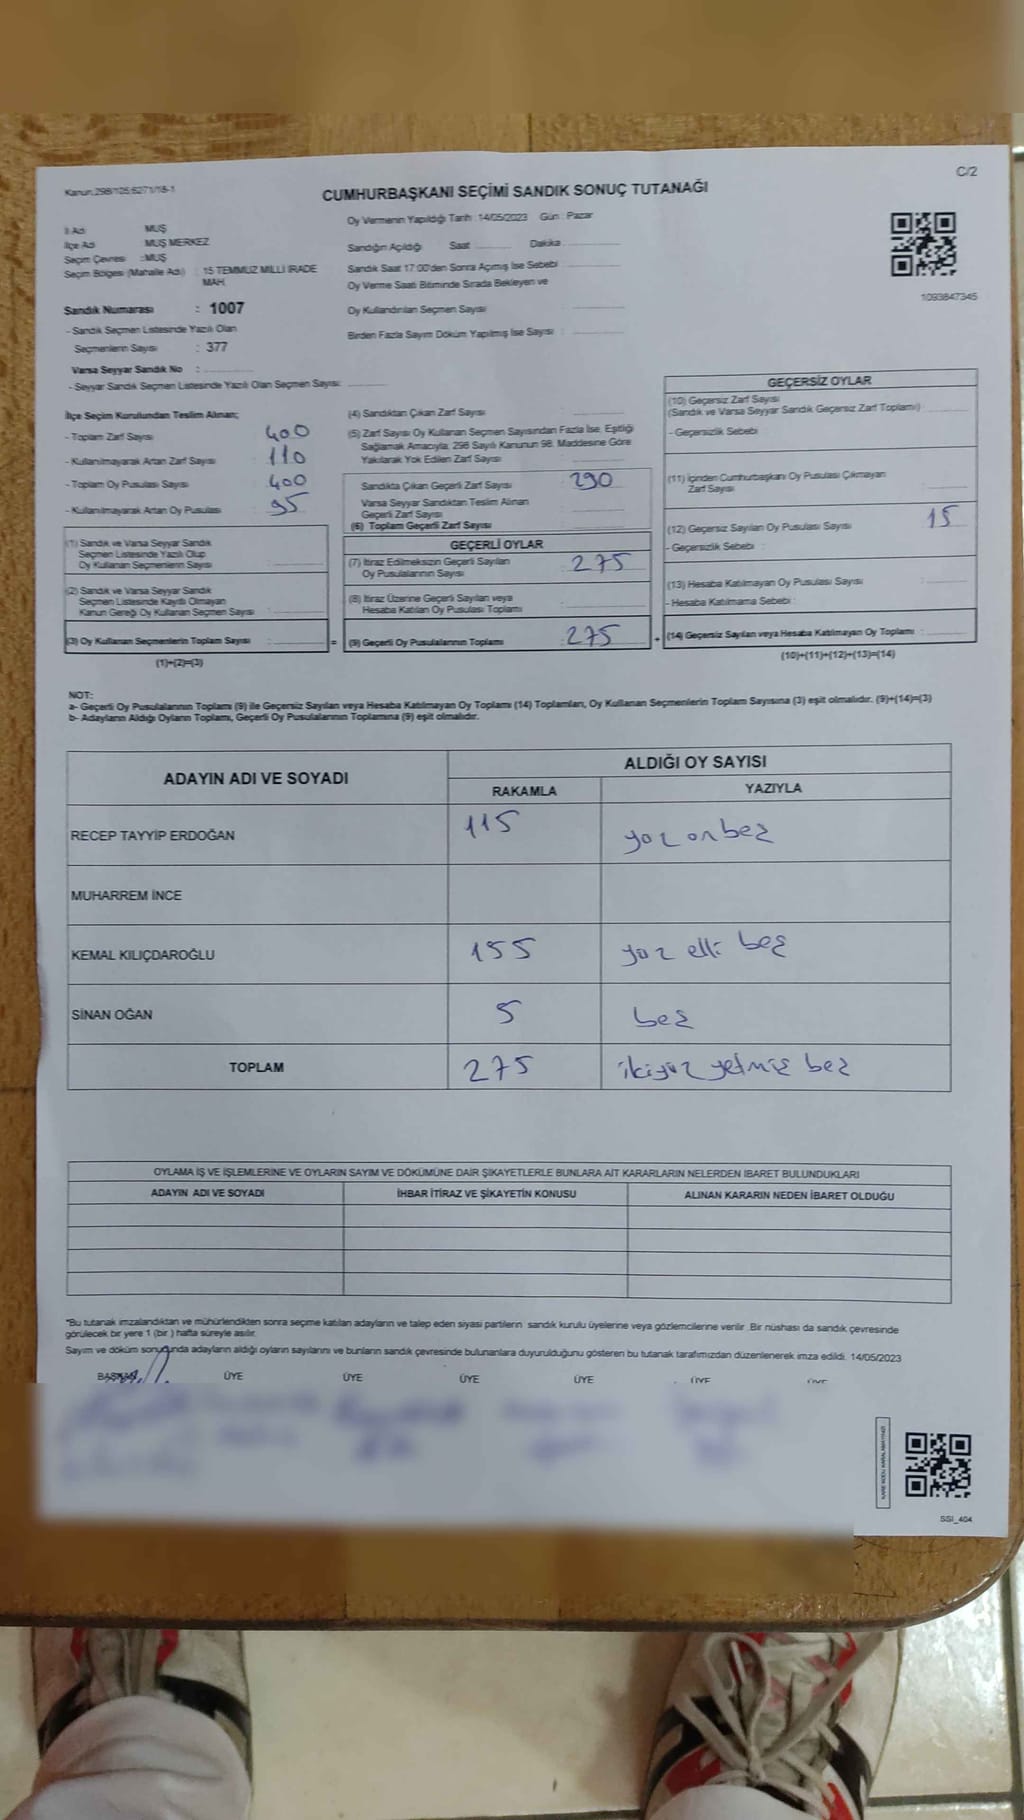 Kanun:298/105;6271/18-1
C/2
CUMHURBAŞKANI SEÇİMİ SANDIK SONUÇ TUTANAĞI
İl Adı MUŞ
İlçe Adı MUŞ MERKEZ
Seçim Çevresi :MUŞ
Seçim Bölgesi (Mahalle Adı) : 15 TEMMUZ MİLLİ İRADE
MAH.
Sandık Numarası : 1007
- Sandık Seçmen Listesinde Yazılı Olan
Seçmenlerin Sayısı : 377
Varsa Seyyar Sandık No :
- Seyyar Sandık Seçmen Listesinde Yazılı Olan Seçmen Sayısı:
Oy Vermenin Yapıldığı Tarih :14/05/2023 Gün : Pazar
Sandığın Açıldığı Saat Dakika
Sandık Saat 17:00'den Sonra Açılmış İse Sebebi
Oy Verme Saati Bitiminde Sırada Bekleyen ve
Oy Kullandırılan Seçmen Sayısı :
Birden Fazla Sayım Döküm Yapılmış İse Sayısı :
1093847345
İlçe Seçim Kurulundan Teslim Alınan;
- Toplam Zarf Sayısı : 400
- Kullanılmayarak Artan Zarf Sayısı : 110
- Toplam Oy Pusulası Sayısı : 400
- Kullanılmayarak Artan Oy Pusulası : 95
(1) Sandık ve Varsa Seyyar Sandık
Seçmen Listesinde Yazılı Olup
Oy Kullanan Seçmenlerin Sayısı :
(2) Sandık ve Varsa Seyyar Sandık
Seçmen Listesinde Kayıtlı Olmayan
Kanun Gereği Oy Kullanan Seçmen Sayısı :
(3) Oy Kullanan Seçmenlerin Toplam Sayısı : =
(1)+(2)=(3)
(4) Sandıktan Çıkan Zarf Sayısı :
(5) Zarf Sayısı Oy Kullanan Seçmen Sayısından Fazla İse, Eşitliği
Sağlamak Amacıyla; 298 Sayılı Kanunun 98. Maddesine Göre
Yakılarak Yok Edilen Zarf Sayısı :
Sandıkta Çıkan Geçerli Zarf Sayısı : 290
Varsa Seyyar Sandıktan Teslim Alınan
Geçerli Zarf Sayısı
(6) Toplam Geçerli Zarf Sayısı
GEÇERLİ OYLAR
(7) İtiraz Edilmeksizin Geçerli Sayılan
Oy Pusulalarının Sayısı : 275
(8) İtiraz Üzerine Geçerli Sayılan veya
Hesaba Katılan Oy Pusulası Toplamı :
(9) Geçerli Oy Pusulalarının Toplamı : 275 +
GEÇERSİZ OYLAR
(10) Geçersiz Zarf Sayısı
(Sandık ve Varsa Seyyar Sandık Geçersiz Zarf Toplamı)
- Geçersizlik Sebebi :
(11) İçinden Cumhurbaşkanı Oy Pusulası Çıkmayan
Zarf Sayısı
(12) Geçersiz Sayılan Oy Pusulası Sayısı : 15
- Geçersizlik Sebebi :
(13) Hesaba Katılmayan Oy Pusulası Sayısı :
- Hesaba Katılmama Sebebi :
(14) Geçersiz Sayılan veya Hesaba Katılmayan Oy Toplamı :
(10)+(11)+(12)+(13)=(14)
NOT:
a- Geçerli Oy Pusulalarının Toplamı (9) ile Geçersiz Sayılan veya Hesaba Katılmayan Oy Toplamı (14) Toplamları, Oy Kullanan Seçmenlerin Toplam Sayısına (3) eşit olmalıdır. (9)+(14)=(3)
b- Adayların Aldığı Oyların Toplamı, Geçerli Oy Pusulalarının Toplamına (9) eşit olmalıdır.
ADAYIN ADI VE SOYADI
ALDIĞI OY SAYISI
RAKAMLA YAZIYLA
RECEP TAYYİP ERDOĞAN 115 yüz on beş
MUHARREM İNCE
KEMAL KILIÇDAROĞLU 155 yüz elli beş
SİNAN OĞAN 5 beş
TOPLAM 275 ikiyüz yetmiş beş
OYLAMA İŞ VE İŞLEMLERİNE VE OYLARIN SAYIM VE DÖKÜMÜNE DAİR ŞİKAYETLERLE BUNLARA AİT KARARLARIN NELERDEN İBARET BULUNDUKLARI
ADAYIN ADI VE SOYADI İHBAR İTİRAZ VE ŞİKAYETİN KONUSU ALINAN KARARIN NEDEN İBARET OLDUĞU
*Bu tutanak imzalandıktan ve mühürlendikten sonra seçime katılan adayların ve talep eden siyasi partilerin sandık kurulu üyelerine veya gözlemcilerine verilir. Bir nüshası da sandık çevresinde
görülecek bir yere 1 (bir ) hafta süreyle asılır.
Sayım ve döküm sonucunda adayların aldığı oyların sayılarını ve bunların sandık çevresinde bulunanlara duyurulduğunu gösteren bu tutanak tarafımızdan düzenlenerek imza edildi. 14/05/2023
BAŞKAN ÜYE ÜYE ÜYE ÜYE ÜYE ÜYE
KARE KODU KARALAMAYINIZ!
SSI_404